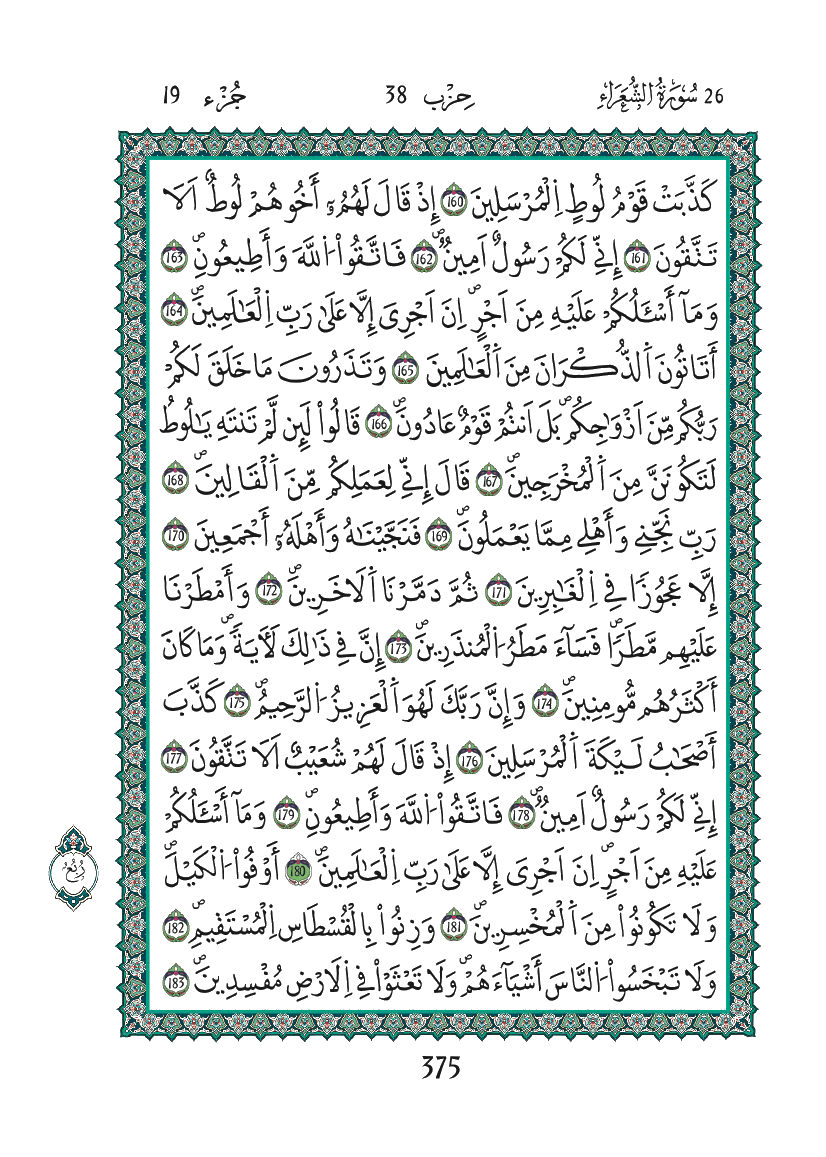 26 سُورَةُ الشُّعَرَاءِ حِزْب 38 جُزْء 19
كَذَّبَتْ قَوْمُ لُوطٍ اِ۬لْمُرْسَلِينَ 160 إِذْ قَالَ لَهُمُۥٓ أَخُوهُمْ لُوطٌ اَلَا
تَتَّقُونَ 161 إِنِّے لَكُمْ رَسُولٌ اَمِينٞ 162 فَاتَّقُواْ اُ۬للَّهَ وَأَطِيعُونِۖ 163
وَمَآ أَسْـَٔلُكُمْ عَلَيْهِ مِنَ اَجْرٍۖ اِنَ اَجْرِىَ إِلَّا عَلَىٰ رَبِّ اِ۬لْعَٰلَمِينَۖ 164
أَتَاتُونَ اَ۬لذُّكْرَانَ مِنَ اَ۬لْعَٰلَمِينَ 165 وَتَذَرُونَ مَا خَلَقَ لَكُمْ
رَبُّكُم مِّنَ اَزْوَٰجِكُمۖ بَلَ اَنتُمْ قَوْمٌ عَادُونَۖ 166 قَالُواْ لَئِن لَّمْ تَنتَهِ يَٰلُوطُ
لَتَكُونَنَّ مِنَ اَ۬لْمُخْرَجِينَۖ 167 قَالَ إِنِّے لِعَمَلِكُم مِّنَ اَ۬لْقَالِينَۖ 168
رَبِّ نَجِّنِے وَأَهْلِے مِمَّا يَعْمَلُونَۖ 169 فَنَجَّيْنَٰهُ وَأَهْلَهُۥٓ أَجْمَعِينَ 170
إِلَّا عَجُوزاٗ فِے اِ۬لْغَٰبِرِينَ 171 ثُمَّ دَمَّرْنَا اَ۬لَاخَرِينَۖ 172 وَأَمْطَرْنَا
عَلَيْهِم مَّطَراٗۖ فَسَآءَ مَطَرُ اُ۬لْمُنذَرِينَۖ 173 إِنَّ فِے ذَٰلِكَ لَأٓيَةٗۖ وَمَا كَانَ
أَكْثَرُهُم مُّومِنِينَۖ 174 وَإِنَّ رَبَّكَ لَهُوَ اَ۬لْعَزِيزُ اُ۬لرَّحِيمُۖ 175 كَذَّبَ
أَصْحَٰبُ لَيْكَةَ اَ۬لْمُرْسَلِينَ 176 إِذْ قَالَ لَهُمْ شُعَيْبٌ اَلَا تَتَّقُونَ 177
إِنِّے لَكُمْ رَسُولٌ اَمِينٞ 178 فَاتَّقُواْ اُ۬للَّهَ وَأَطِيعُونِۖ 179 وَمَآ أَسْـَٔلُكُمْ
عَلَيْهِ مِنَ اَجْرٍۖ اِنَ اَجْرِىَ إِلَّا عَلَىٰ رَبِّ اِ۬لْعَٰلَمِينَۖ 180 أَوْفُواْ اُ۬لْكَيْلَۖ
رُبُع
وَلَا تَكُونُواْ مِنَ اَ۬لْمُخْسِرِينَۖ 181 وَزِنُواْ بِالْقُسْطَاسِ اِ۬لْمُسْتَقِيمِۖ 182
وَلَا تَبْخَسُواْ اُ۬لنَّاسَ أَشْيَآءَهُمْۖ وَلَا تَعْثَوْاْ فِے اِ۬لَارْضِ مُفْسِدِينَۖ 183
375